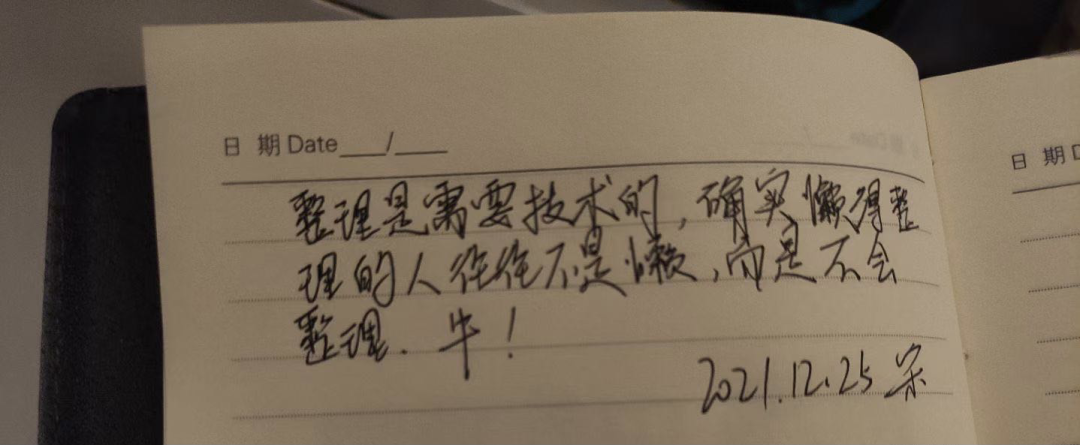 日 期 Date ___/___
整理是需要技术的,确实懒得整
理的人往往不是懒,而是不会
整理. 牛!
2021.12.25 宋
日 期 D